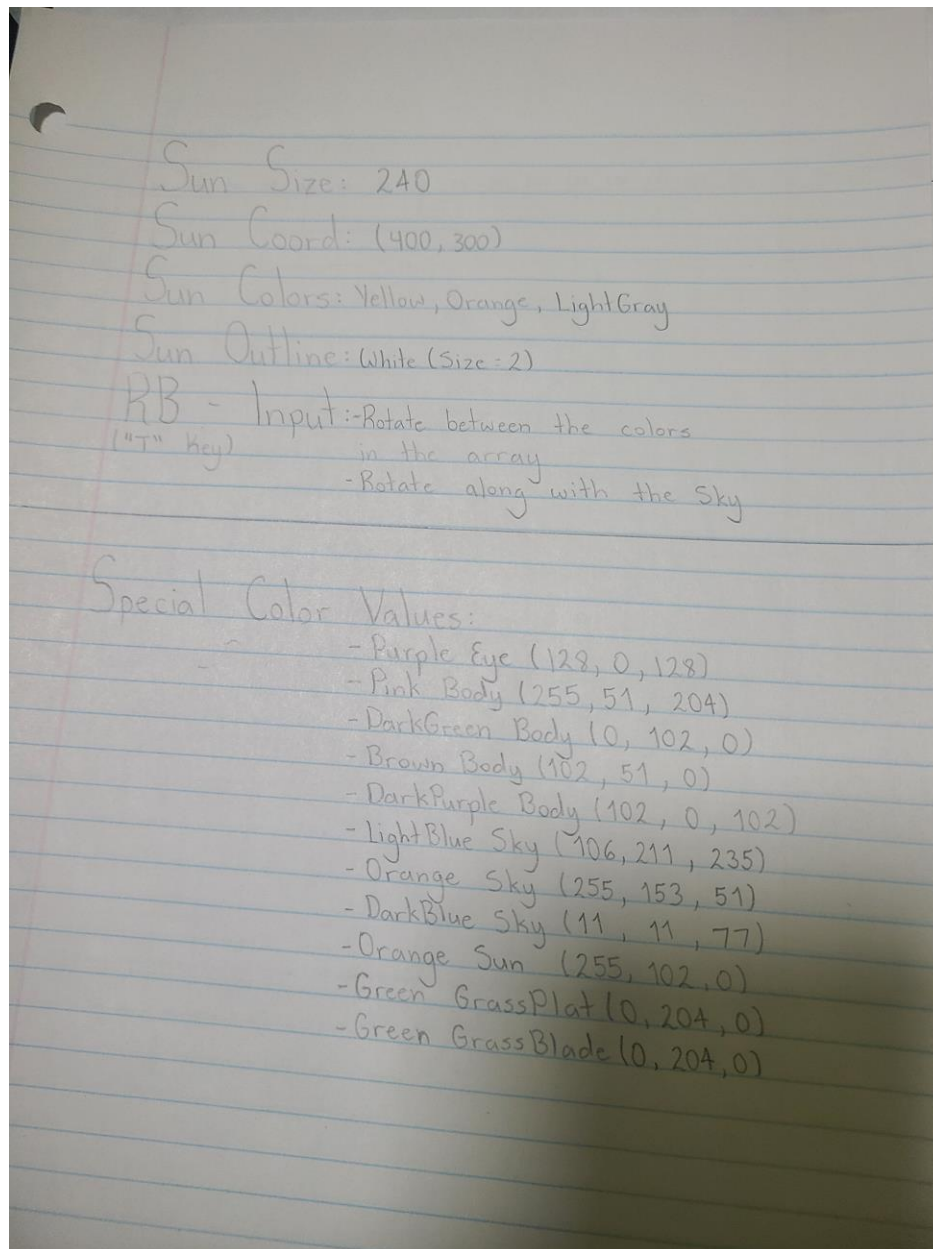 Sun Size: 240
Sun Coord: (400, 300)
Sun Colors: Yellow, Orange, LightGray
Sun Outline: White (Size: 2)
RB - Input: -Rotate between the colors
("T" Key) in the array
-Rotate along with the Sky
Special Color Values:
- Purple Eye (128, 0, 128)
- Pink Body (255, 51, 204)
- DarkGreen Body (0, 102, 0)
- Brown Body (102, 51, 0)
- DarkPurple Body (102, 0, 102)
- LightBlue Sky (106, 211, 235)
- Orange Sky (255, 153, 51)
- DarkBlue Sky (11, 11, 77)
- Orange Sun (255, 102, 0)
- Green GrassPlat (0, 204, 0)
- Green GrassBlade (0, 204, 0)